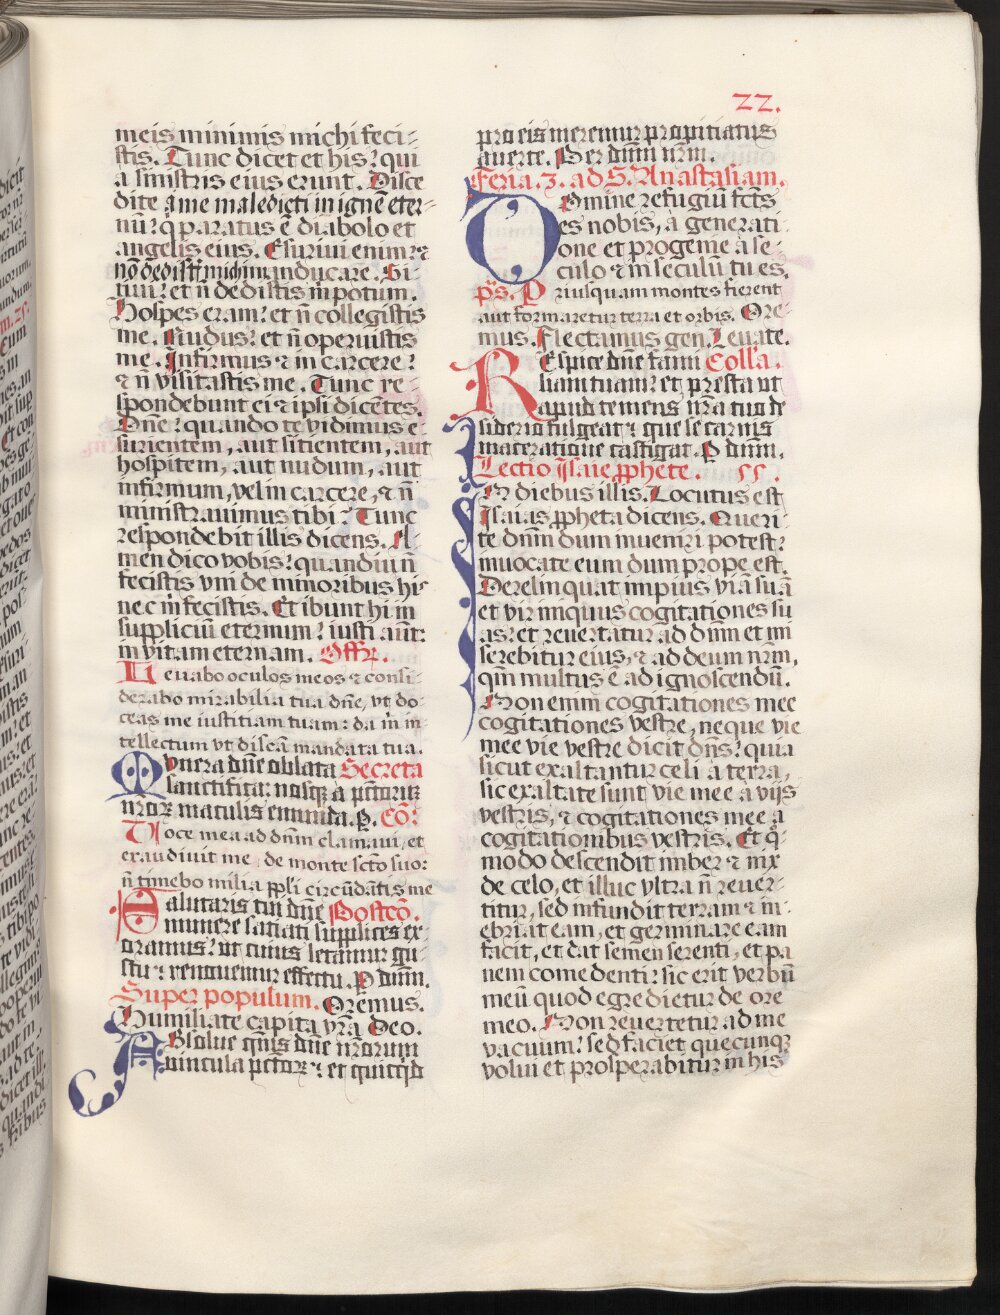 22.
meis minimis michi feci-
stis. Tunc dicet et his? qui
a sinistris eius erunt. Disce
dite a me maledicti in ignē eter-
nū? q̇ paratus ē diabolo et
angelis eius. Esurivi enim? ⁊
nō dedistis michi manducare. Si-
tivi? et n̄ dedistis m̄ potum.
Hospes eram? et n̄ collegistis
me. Nudus? et n̄ operuistis
me. Infirmus ⁊ in carcere?
⁊ n̄ visitastis me. Tunc re-
spondebunt ei ⁊ ipsi dicētes.
Dn̄e? quando te vidimus e
surientem, aut sitientem, aut
hospitem, aut nudum, aut
infirmum, vel in carcere, ⁊ n̄
ministravimus tibi? Tunc
respondebit illis dicens. A-
men dico vobis? quandiu n̄
fecistis vni de minoribus his
nec m̄ fecistis. Et ibunt hi in
suppliciū eternum? iusti aūt:
in vitam eternam. Offr̄.
Levabo oculos meos ⁊ consi-
derabo mirabilia tua dn̄e, vt do-
ceas me iustitiam tuam: da m̄ in-
tellectum vt discā mandata tua.
Mvnera dn̄e oblata Secreta
sanctifica: nosq̄ a pctōrum
nrōꝝ maculis emunda. P. Cō:
Voce mea ad dn̄m clamavi, et
exaudivit me de monte scto suo:
n̄ timebo milia ppli circūdātis me
Salutaris tui dn̄e Postcō.
munere satiati supplices ex-
oramus? ut cuius letamur gu-
stu: renovemur effectu. P dn̄m.
Super populum. Oremus.
Humiliate capita vr̄a Deo.
ABsolve qn̄is dn̄e nr̄orum
vincula pctōꝝ: et quicqd
pro eis meremur propitiatus
averte. Per dn̄m nr̄m.
Feria. 3. ad S. Anastasiam.
Domine refugiū fcts
es nobis, a generati-
one et progenie a se-
culo ⁊ in seculū tu es.
ps. Priusquam montes fierent
aut formaretur terra et orbis. Ore-
mus. Flectamus gen. Levate.
REspice dn̄e fami Colla.
liam tuam? et presta ut
apud te mens nr̄a tuo de
siderio fulgeat: que se carnis
maceratione castigat. P dn̄m.
Lectio Isaie pphete. 55.
In diebus illis. Locutus est
Isaias ppheta dicens. Queri-
te dn̄m dum inveniri potest?
invocate eum dum prope est.
Derelinquat impius viā suā
et vir iniquus cogitationes su
as? et revertatur ad dn̄m et mi
serebitur eius, ⁊ ad deum nr̄m,
qm̄ multus ē ad ignoscendū.
Non enim cogitationes mee
cogitationes vestre, neque vie
mee vie vestre dicit dn̄s? quia
sicut exaltantur celi a terra,
sic exaltate sunt vie mee a vijs
vestris, ⁊ cogitationes mee a
cogitationibus vestris. Et q̊-
modo descendit imber ⁊ nix
de celo, et illuc vltra n̄ rever-
titur, sed infundit terram ⁊ in-
ebriat eam, et germinare eam
facit, et dat semen serenti, et pa
nem comedenti? sic erit verbū
meū quod egredietur de ore
meo. Non revertetur ad me
vacuum? sed faciet quecunq̄
volui et prosperabitur in his